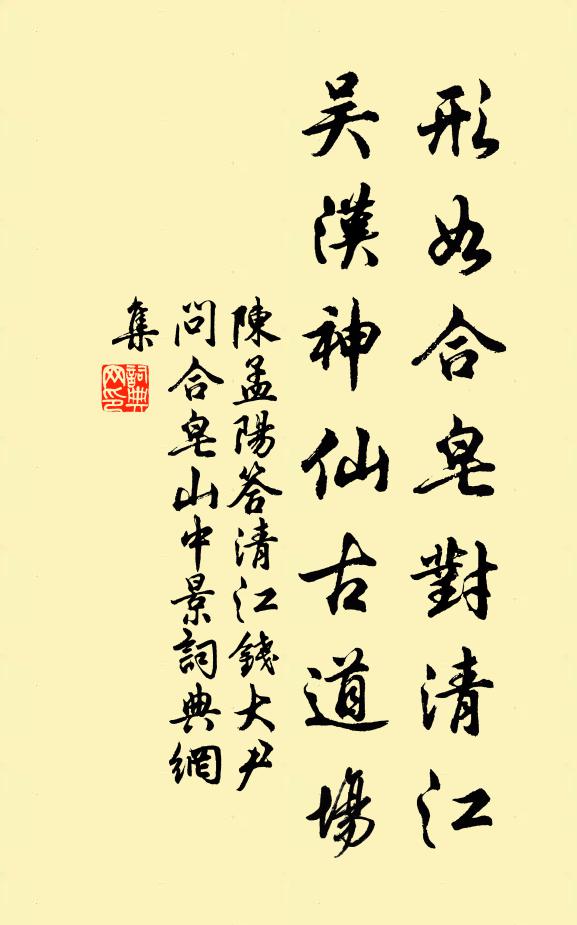 形如合皂對清江
吳漢神仙古道場
陳孟陽答清江錢大尹
問合皂山中景詞典網
集
詞典
网印